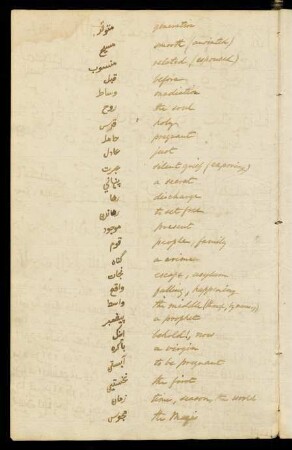 متولد generation
مسیح smooth (anointed)
منسوب related (espoused)
قبل before
وساطت mediation
روح the soul
قدس holy
حامله pregnant
عادل just
عبرت silent grief
پنهانی a secret
رها discharge
رهانیدن to set free
موجود present
قوم people, family
گناه a crime
نجات escape, asylum
واقع falling, happening
واسطه the middle
پیغمبر a prophet
اینک behold, now
باکره a virgin
آبستن to be pregnant
نخستین the first
زمان time, season, the world
مجوس the Magi